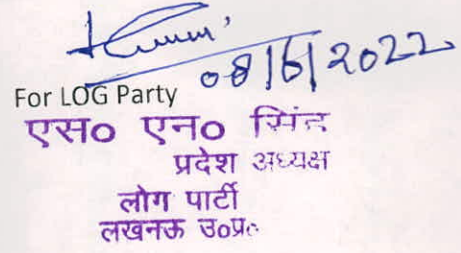 08/6/2022
For LOG Party
एस० एन० सिंह
प्रदेश अध्यक्ष
लोग पार्टी
लखनऊ उ०प्र०